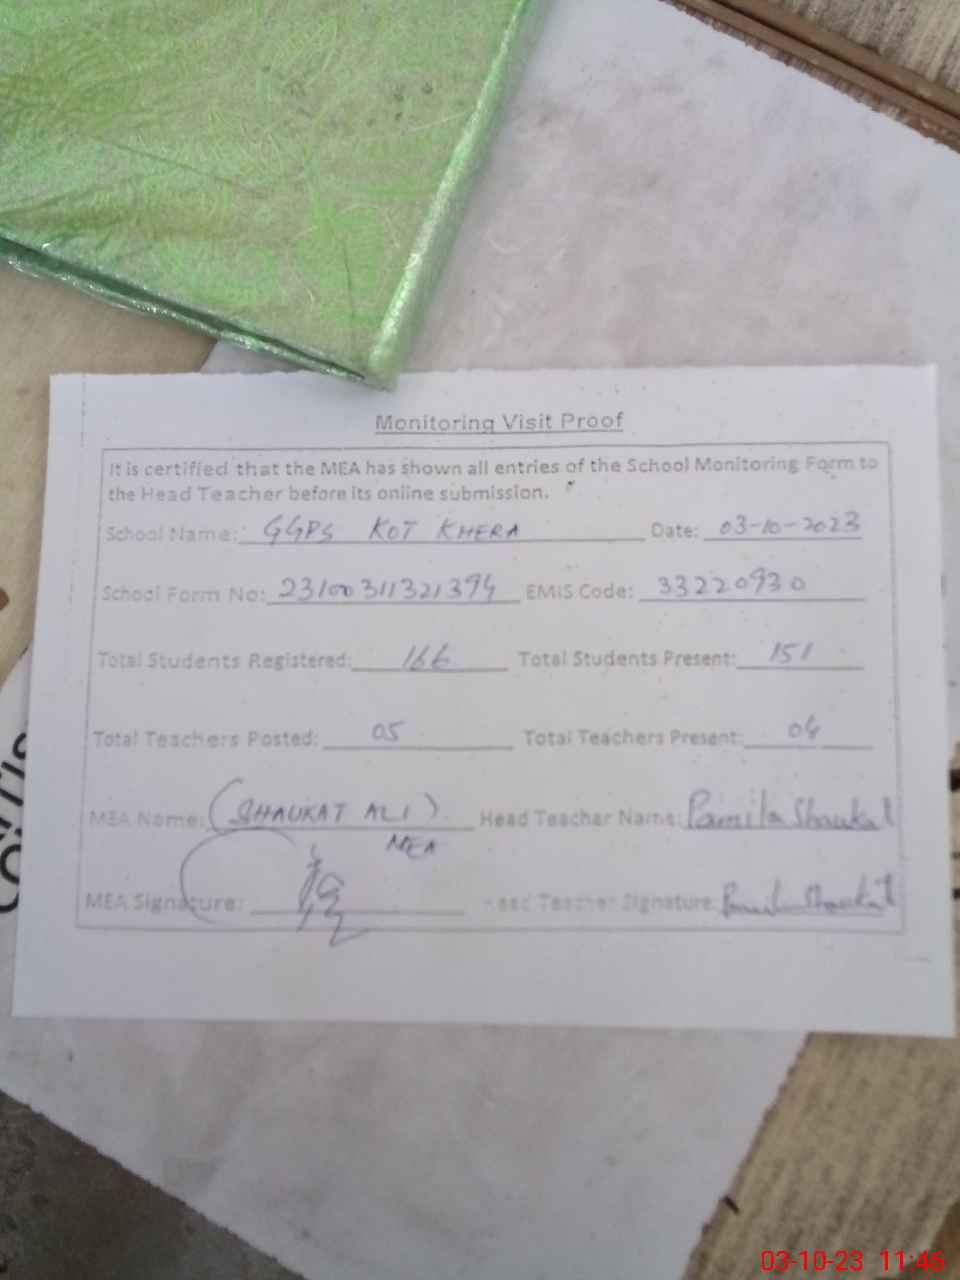 Monitoring Visit Proof
It is certified that the MEA has shown all entries of the School Monitoring Form to
the Head Teacher before its online submission.
School Name: GGPS KOT KHERA Date: 03-10-2023
School Form No: 23100311321394 EMIS Code: 33220930
Total Students Registered: 166 Total Students Present: 151
Total Teachers Posted: 05 Total Teachers Present: 04
MEA Name: (SHAUKAT ALI) Head Teacher Name: Pamila Shaukat
MEA
MEA Signature: Head Teacher Signature: Pamila Shaukat
03-10-23 11:46